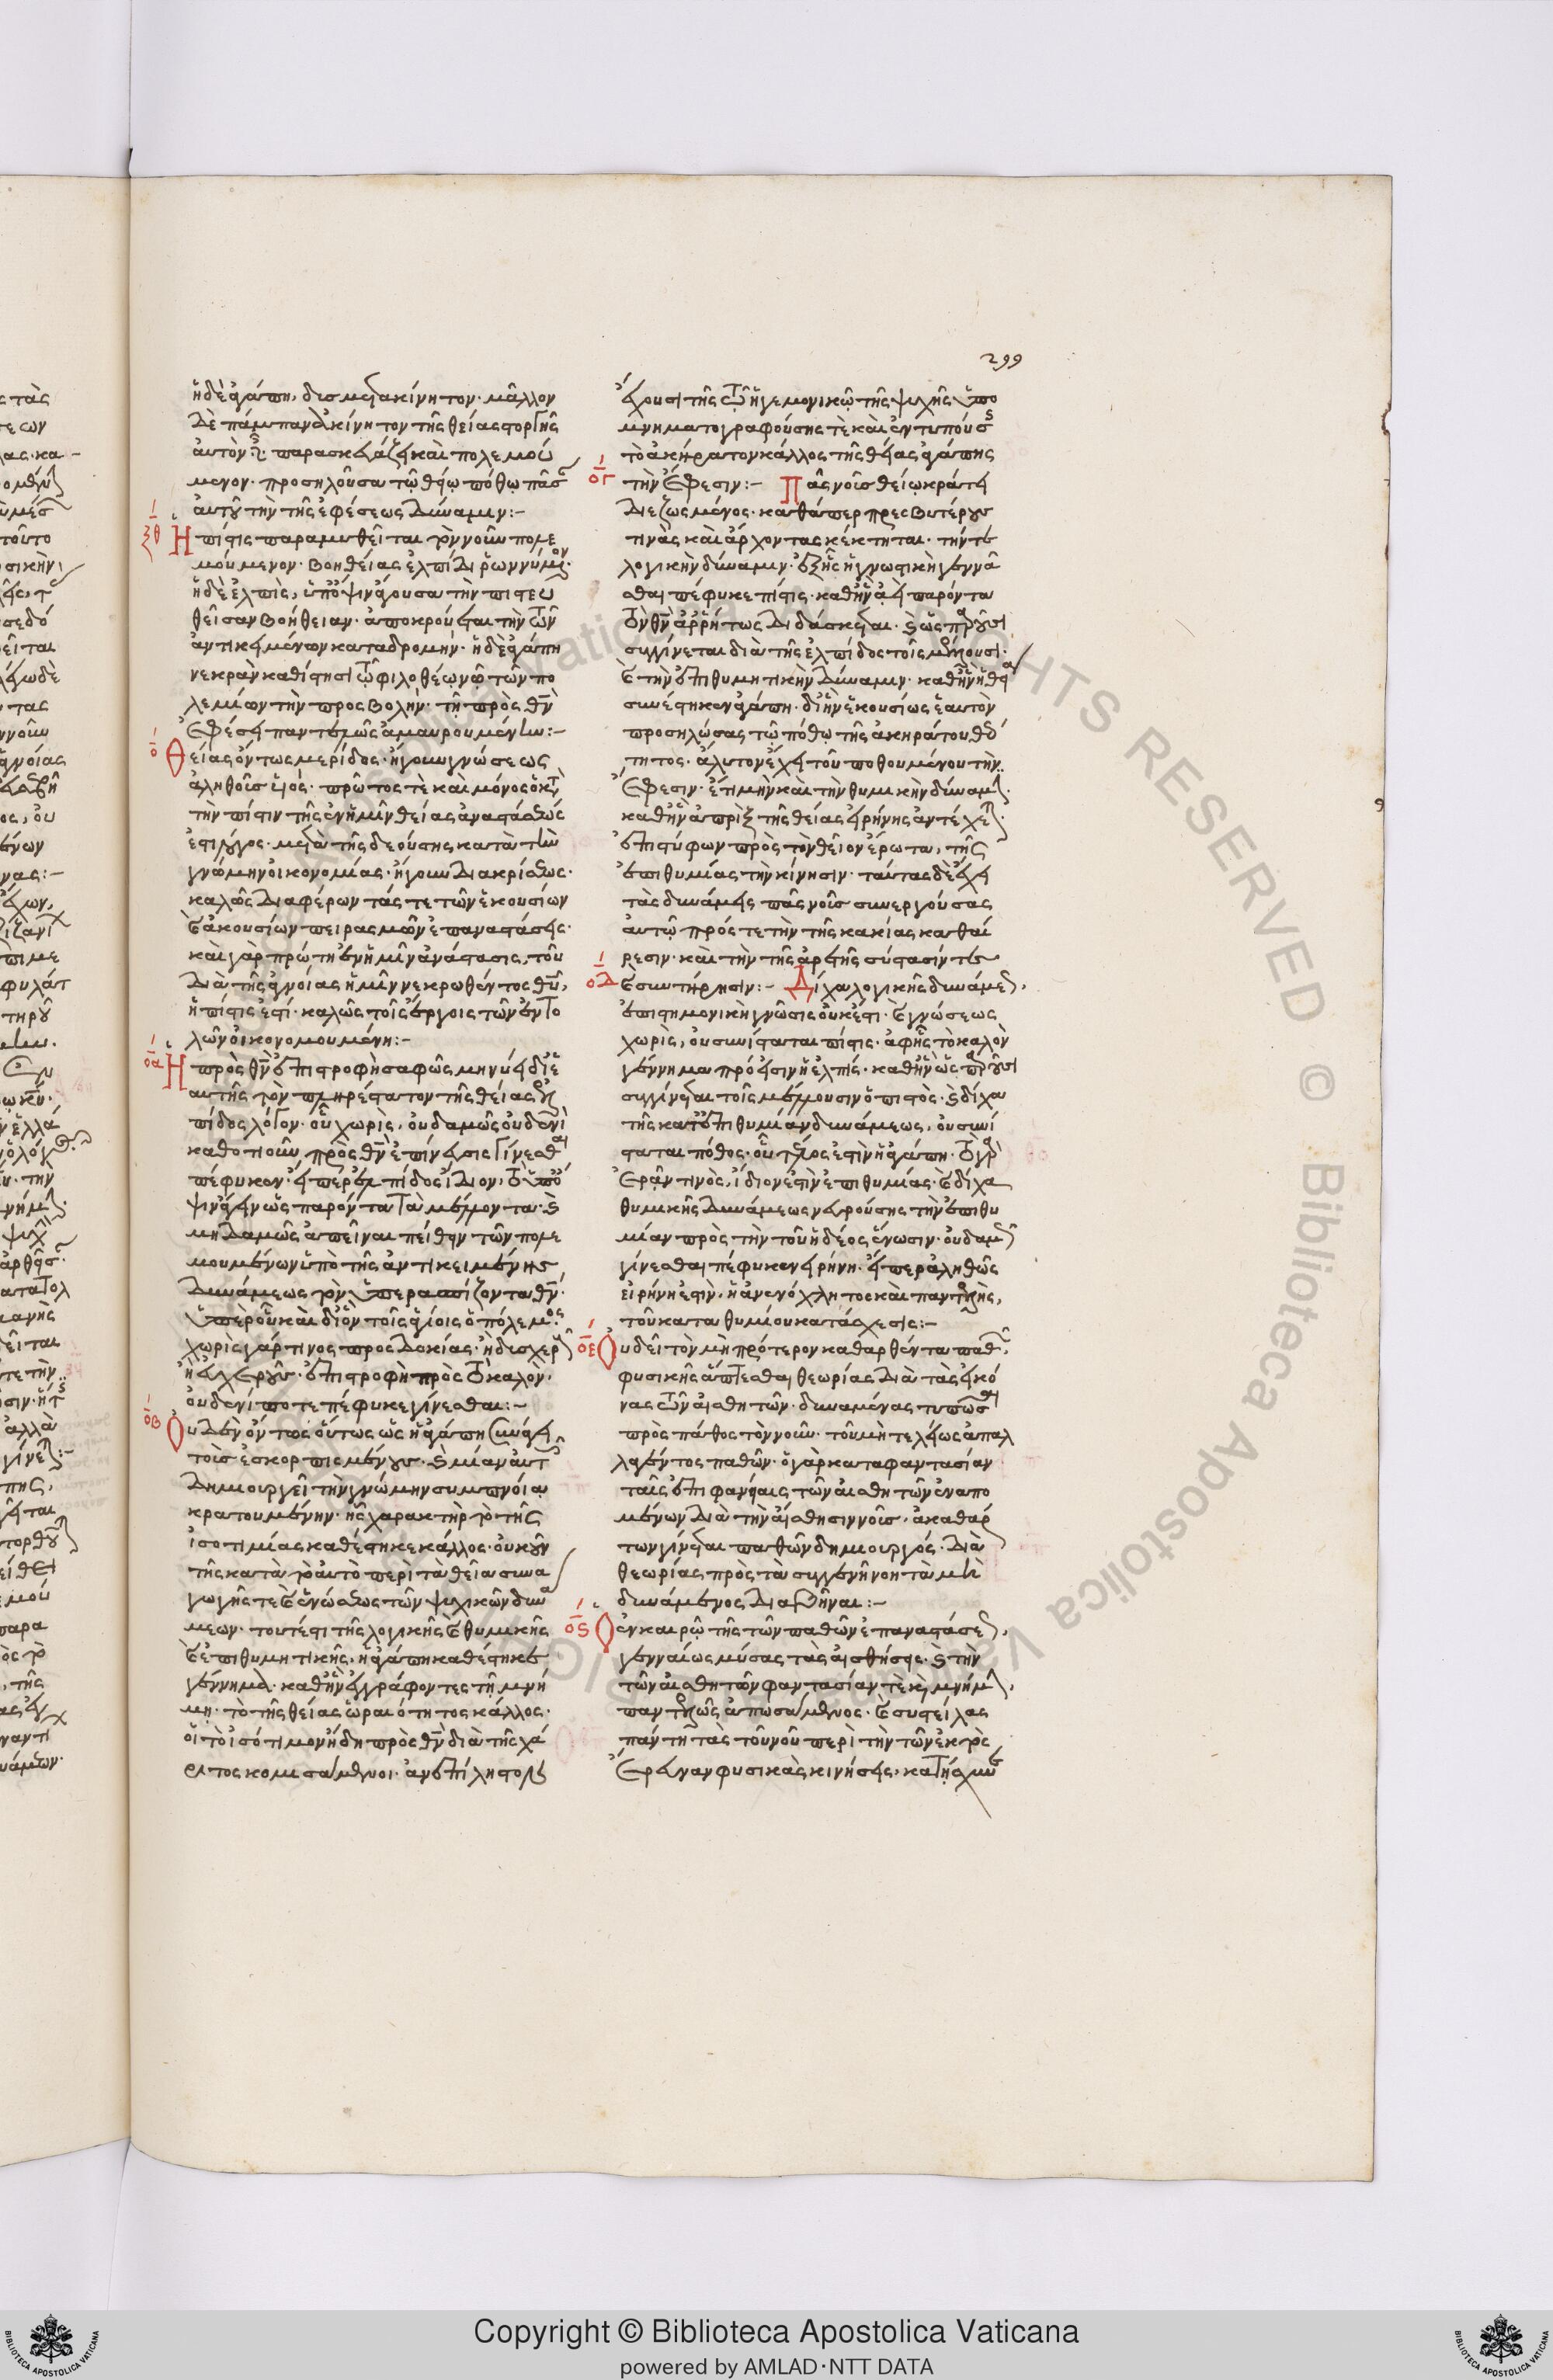 299
ἡ δὲ ἀγάπη, δυσμετακίνητον· μᾶλλον
δὲ πάμπαν ἀκίνητον τῆς θείας στοργῆς
αὐτὸν εἶναι παρασκευάζει καὶ πολεμού
μενον· προσηλοῦσα τῷ θείῳ πόθῳ πᾶσαν
αὐτοῦ τὴν τῆς ἐφέσεως δύναμιν:-
ξθ Ἡ πίστις παραμυθεῖται τὸν νοῦν πολε
μούμενον· βοηθείας ἐλπίδι ῥωννύμενον·
ἡ δὲ ἐλπὶς, ὑπόψιν ἄγουσα τὴν πιστευ
θεῖσαν βοήθειαν· ἀποκρούεται τὴν τῶν
ἀντικειμένων καταδρομήν· ἡ δὲ ἀγάπη
νεκρὰν καθίστησι τῷ φιλοθέῳ νῷ τῶν πο
λεμίων τὴν προσβολὴν· τῇ πρὸς θν
ἐφέσει παντελῶς ἀμαυρουμένην:-
ο Θείας ὄντως μερίδος· ἤγουν γνώσεως
ἀληθοῦς υἱός· πρῶτός τε καὶ μόνος ὁ κατὰ
τὴν πίστιν τῆς ἐν ἡμῖν θείας ἀναστάσεώς
ἐστι λόγος· μετὰ τῆς δεούσης κατὰ τὴν
γνώμην οἰκονομίας· ἤγουν διακρίσεως·
καλῶς διαφέρων τάς τε τῶν ἑκουσίων
καὶ ἀκουσίων πειρασμῶν ἐπαναστάσεις·
καὶ γὰρ πρώτη ἐν ἡμῖν ἀνάστασις, τοῦ
διὰ τῆς ἀγνοίας ἡμῖν νεκρωθέντος θυ,
ἡ πίστις ἐστὶ· καλῶς τοῖς ἔργοις τῶν ἐντο
λῶν οἰκονομουμένη:-
οα Ἡ πρὸς θν ἐπιστροφὴ σαφῶς μηνύει δι' ἑ
αυτῆς τὸν πληρέστατον τῆς θείας ἐλ
πίδος λόγον· οὗ χωρὶς, οὐδαμῶς οὐδενὶ
καθοτιοῦν πρὸς θν ἐπίνευσις γίνεσθαι
πέφυκεν· εἴπερ ἐλπίδος ἴδιον, τὸ ὑπό
ψιν ἄγειν ὡς παρόντα τὰ μέλλοντα· καὶ
μηδαμῶς ἀπεῖναι πείθειν τῶν πολε
μουμένων ὑπὸ τῆς ἀντικειμένης
δυνάμεως τὸν ὑπερασπίζοντα θν·
ὑπὲρ οὗ καὶ δι' ὃν τοῖς ἁγίοις ὁ πόλεμος·
χωρὶς γάρ τινος προσδοκίας· ἢ δυσχεροῦς
ἢ εὐχεροῦς· ἐπιστροφὴ πρὸς τὸ καλὸν,
οὐδενί ποτε πέφυκε γίνεσθαι:-
οβ Οὐδὲν ὄντως οὕτως ὡς ἡ ἀγάπη συνάγει
τοὺς ἐσκορπισμένους· καὶ μίαν αὐτῶν
δημιουργεῖ τὴν γνώμην συμπνοίᾳ
κρατουμένην· ἧς χαρακτὴρ τὸ τῆς
ἰσοτιμίας καθέστηκε κάλλος· οὐκοῦν
τῆς κατὰ τὸ αὐτὸ περὶ τὰ θεῖα συνα
γωγῆς τὲ καὶ ἑνώσεως τῶν ψυχικῶν δυνά
μεων· τουτέστι τῆς λογικῆς καὶ θυμικῆς
καὶ ἐπιθυμητικῆς, ἡ ἀγάπη καθέστηκε
γέννημα· καθ' ἣν ἐγγράφοντες τῇ μνή
μῃ· τὸ τῆς θείας ὡραιότητος κάλλος·
οἱ τὸ ἰσότιμον ἤδη πρὸς θν διὰ τῆς χά
ριτος κομισάμενοι· ἀνεπίληστον
ἔχουσι τῆς τῷ ἡγεμονικῷ τῆς ψυχῆς ὑπο
μνηματογραφούσης τὲ καὶ ἐντυπούσης
τὸ ἀκήρατον κάλλος τῆς θείας ἀγάπης
ογ τὴν ἔφεσιν:- Πᾶς νοῦς θείῳ κράτει
διεζωσμένος· καθάπερ πρεσβυτέρους
τινὰς καὶ ἄρχοντας κέκτηται· τήν τε
λογικὴν δύναμιν· ἐξ ἧς ἡ γνωστικὴ γεννᾶ
σθαι πέφυκε πίστις· καθ' ἣν ἀεὶ παρόντα
τὸν θν ἀρρήτως διδάσκεται· καὶ ὡς παροῦσι
συγγίνεται διὰ τῆς ἐλπίδος τοῖς μέλλουσι·
καὶ τὴν ἐπιθυμητικὴν δύναμιν· καθ' ἣν ἡ θεία
συνέστηκεν ἀγάπη· δι' ἣν ἑκουσίως ἑαυτὸν
προσηλώσας τῷ πόθῳ τῆς ἀκηράτου θεό
τητος· ἄλυτον ἔχει τοῦ ποθουμένου τὴν
ἔφεσιν· ἔτι μὴν καὶ τὴν θυμικὴν δύναμιν·
καθ' ἣν ἀπρὶξ τῆς θείας εἰρήνης ἀντέχεται·
ἐπιστύφων πρὸς τὸν θεῖον ἔρωτα, τῆς
ἐπιθυμίας τὴν κίνησιν· ταύτας δὲ ἔχει
τὰς δυνάμεις πᾶς νοῦς συνεργούσας
αὐτῷ πρός τε τὴν τῆς κακίας καθαί
ρεσιν· καὶ τὴν τῆς ἀρετῆς σύστασίν τε
οδ καὶ συντήρησιν:- Δίχα λογικῆς δυνάμεως,
ἐπιστημονικὴ γνῶσις οὐκ ἔστι· καὶ γνώσεως
χωρὶς, οὐ συνίσταται πίστις· ἀφ' ἧς τὸ καλὸν
γέννημα πρόεισιν ἡ ἐλπίς· καθ' ἣν ὡς παροῦσι
συγγίνεται τοῖς μέλλουσιν ὁ πιστός· καὶ δίχα
τῆς κατ' ἐπιθυμίαν δυνάμεως, οὐ συνί
σταται πόθος· οὗ τέλος ἐστὶν ἡ ἀγάπη· τὸ γὰρ
ἐρᾶν τινὸς, ἴδιον ἐστὶν ἐπιθυμίας· καὶ δίχα
θυμικῆς δυνάμεως νευρούσης τὴν ἐπιθυ
μίαν πρὸς τὴν τοῦ ἡδέος ἕνωσιν· οὐδαμῶς
γίνεσθαι πέφυκεν εἰρήνη· εἴπερ ἀληθῶς
εἰρήνη ἐστὶν, ἡ ἀνενόχλητος καὶ παντελὴς,
τοῦ καταθυμίου κατάσχεσις:-
οε Οὐ δεῖ τὸν μὴ πρότερον καθαρθέντα παθῶν,
φυσικῆς ἅπτεσθαι θεωρίας διὰ τὰς εἰκό
νας τῶν αἰσθητῶν· δυναμένας τυπῶσαι
πρὸς πάθος τὸν νοῦν· τοῦ μὴ τελείως ἀπαλ
λαγέντος παθῶν· ὁ γὰρ κατὰ φαντασίαν
ταῖς ἐπιφανείαις τῶν αἰσθητῶν ἐναπο
μένων διὰ τὴν αἴσθησιν νοῦς, ἀκαθάρ
των γίνεται παθῶν δημιουργός· διὰ
θεωρίας πρὸς τὰ συγγενῆ νοητὰ μὴ
δυνάμενος διαβῆναι:-
ος Ὁ ἐν καιρῷ τῆς τῶν παθῶν ἐπαναστάσεως,
γενναίως μύσας τὰς αἰσθήσεις· καὶ τὴν
τῶν αἰσθητῶν φαντασίαν τὲ καὶ μνήμην,
παντελῶς ἀπωσάμενος· καὶ συστείλας
πάντη τὰς τοῦ νοῦ περὶ τὴν τῶν ἐκτὸς
ἔρευναν φυσικὰς κινήσεις,
Copyright © Biblioteca Apostolica Vaticana
powered by AMLAD·NTT DATA